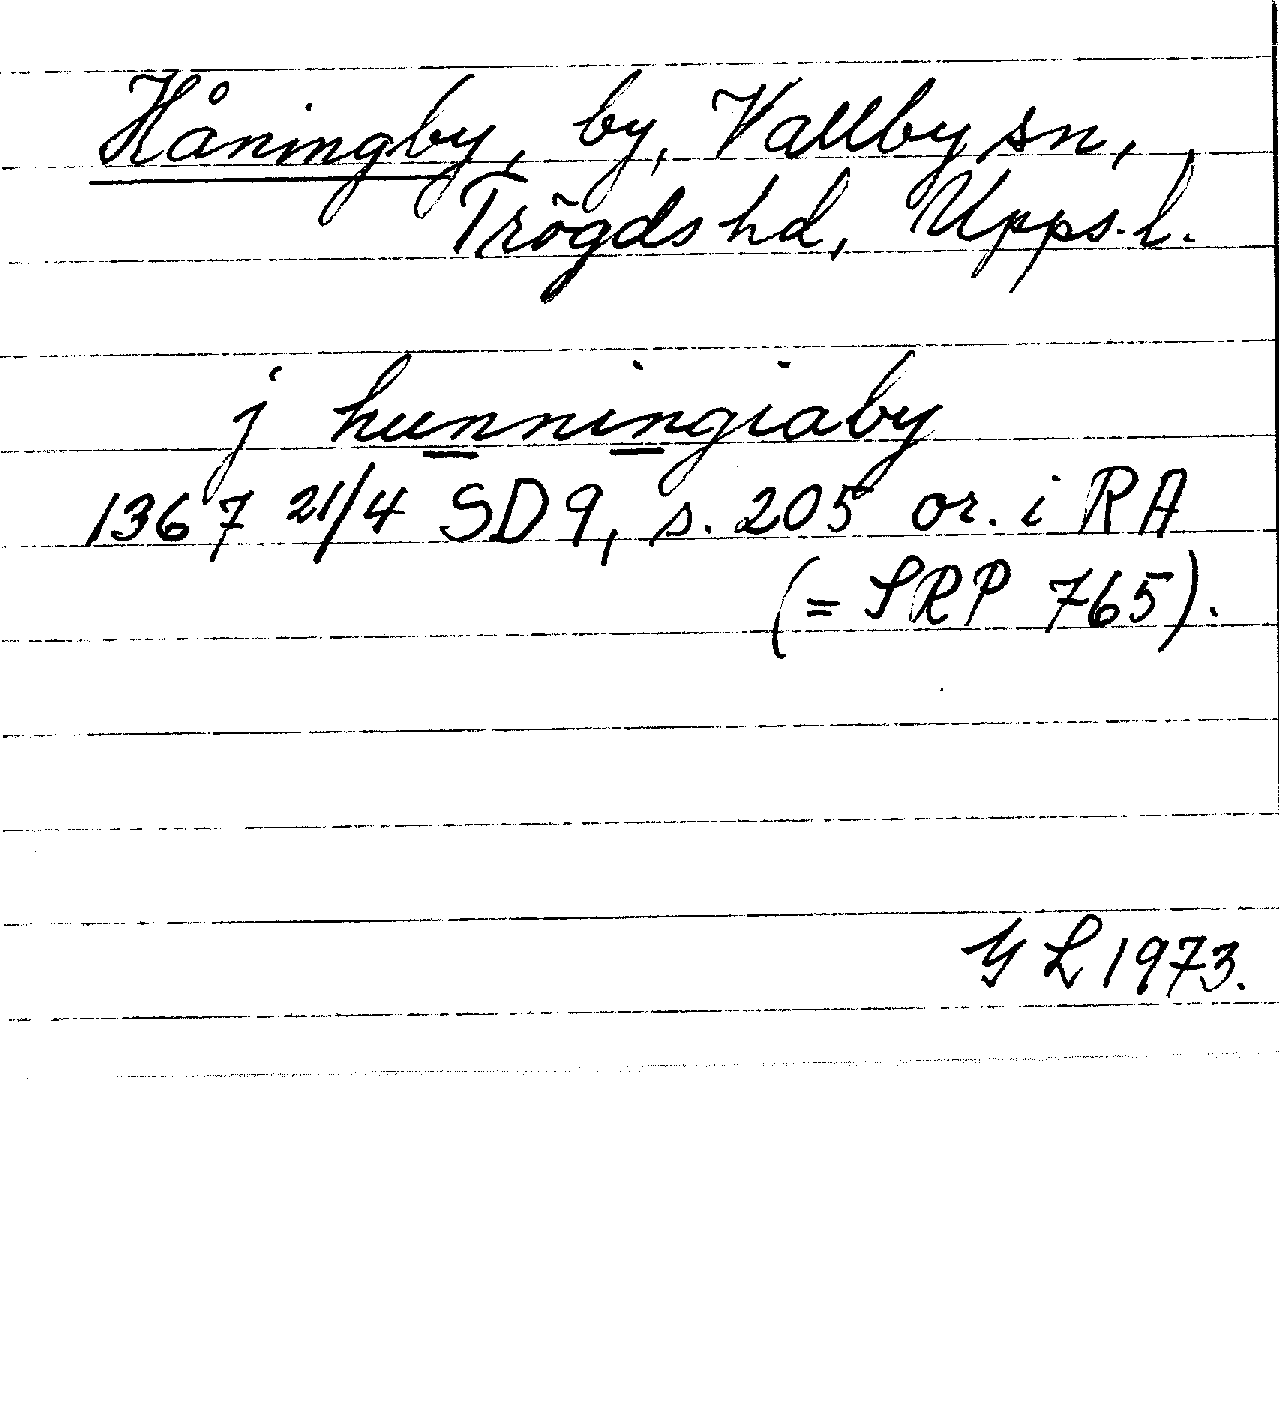 Håningby, by, Vallby sn,
Trögds hd, Upps. l.
j hunningiaby
1367 21/4 SD 9, s. 205 or. i RA
(= SRP 765).
GL 1973.